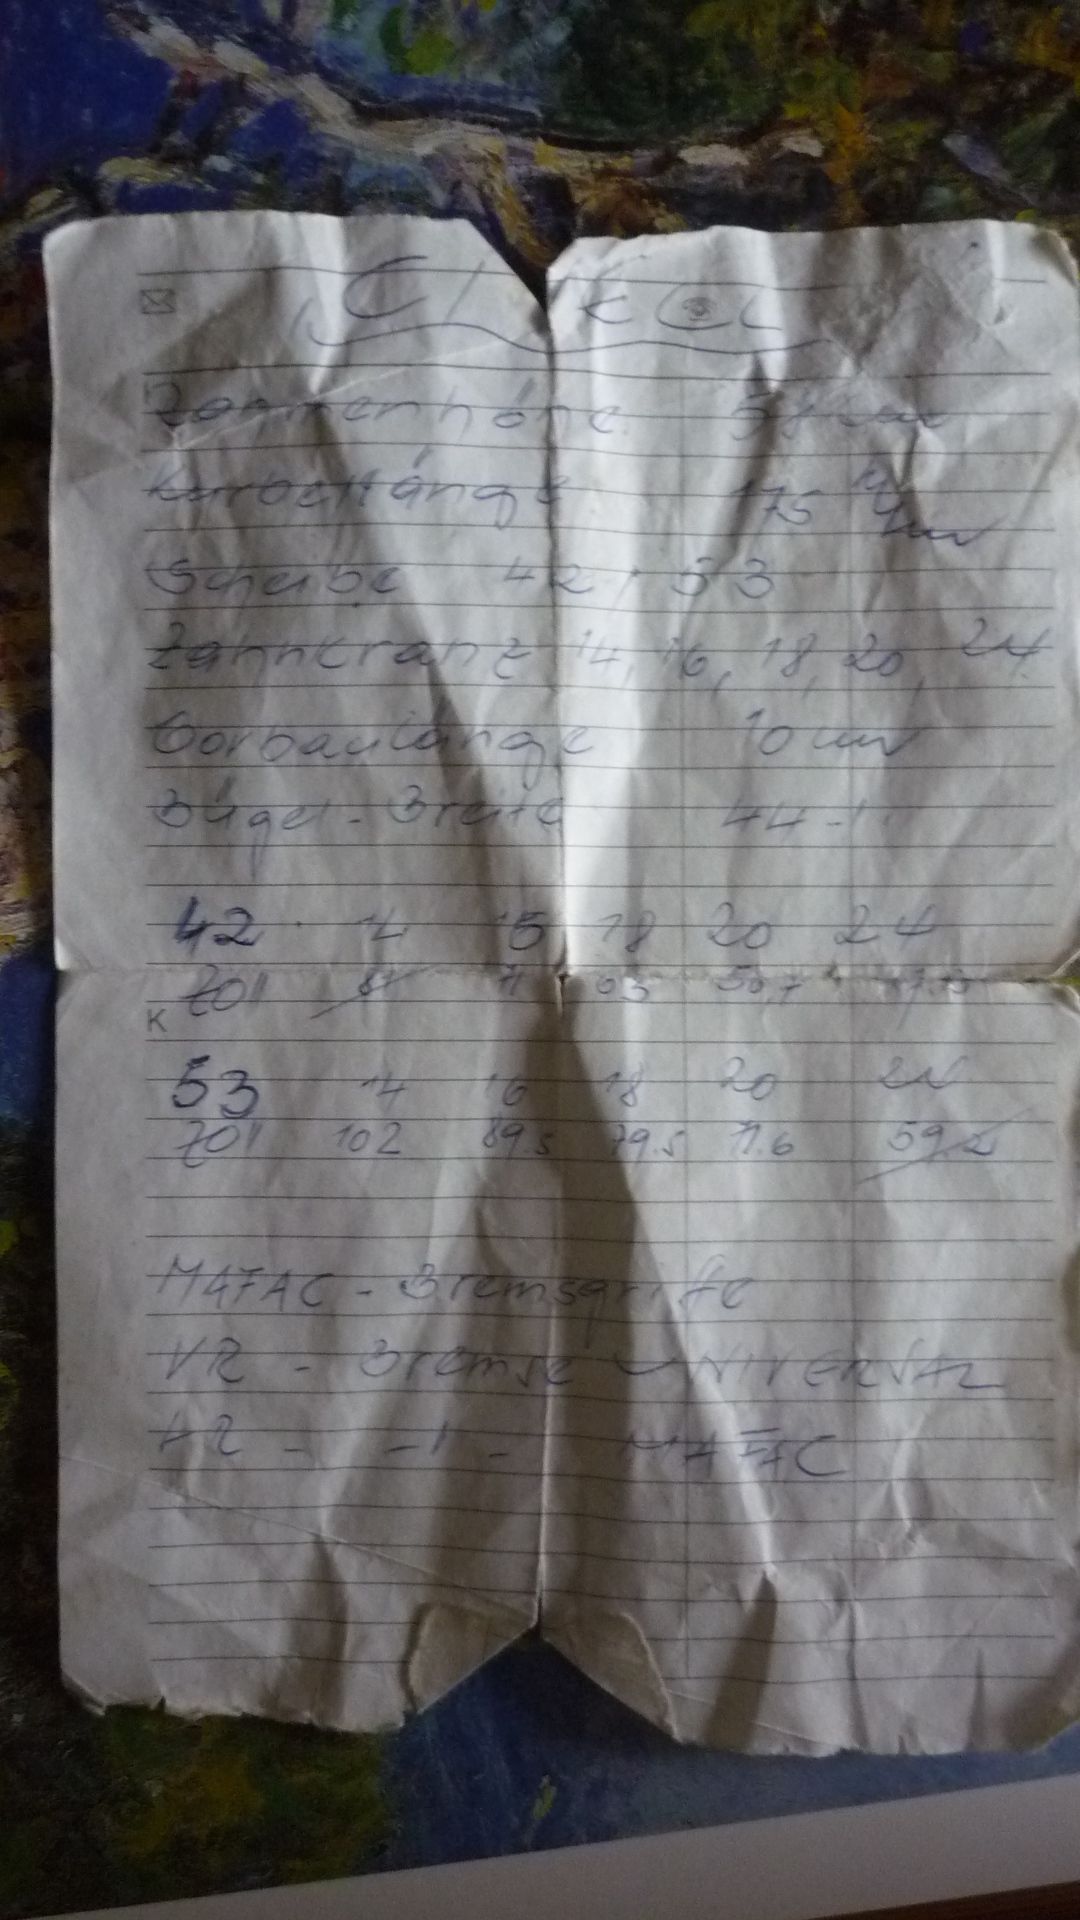 Rahmenhöhe 58 cm
Kurbellänge 175 mm
Scheibe 42, 53
Zahnkranz 14, 16, 18, 20, 24
Vorbaulänge 10 cm
Bügel-Breite 44 -"-
42 14 15 18 20 24
Zoll 71 63
K
53 14 16 18 20 24
Zoll 102 89.5 79.5 71.6 59.2
MAFAC - Bremsgriffe
VR - Bremse UNIVERSAL
HR - -"- MAFAC